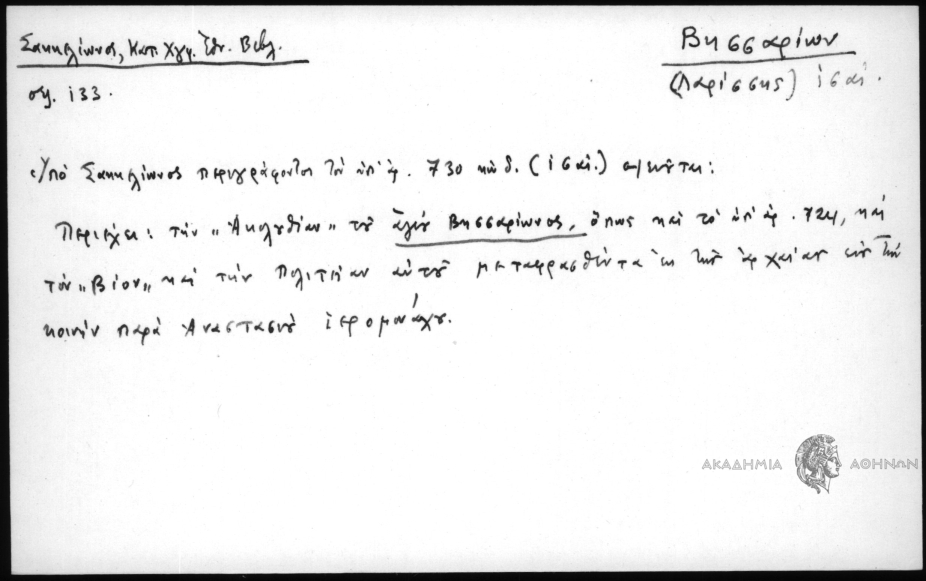 Σακκελίωνος, Κατ. Χγφ. Ἐθν. Βιβλ.
Βησσαρίων
(Λαρίσσης) ιϛ' αἰ.
σελ. 133.
Ὑπὸ Σακκελίωνος περιγράφοντος τὸν ὑπ' ἀρ. 730 κώδ. (ιϛ' αἰ.) σημειοῦται:
Περιέχει: τὴν „Ἀκολουθίαν" τοῦ ἁγίου Βησσαρίωνος, ὅπως καὶ τὸ ὑπ' ἀρ. 724, καὶ
τὸν „Βίον" καὶ τὴν Πολιτείαν αὐτοῦ μεταφρασθέντα ἐκ τῆς ἀρχαίας εἰς τὴν
κοινὴν παρὰ Ἀναστασίου ἱερομονάχου.
ΑΚΑΔΗΜΙΑ ΑΘΗΝΩΝ